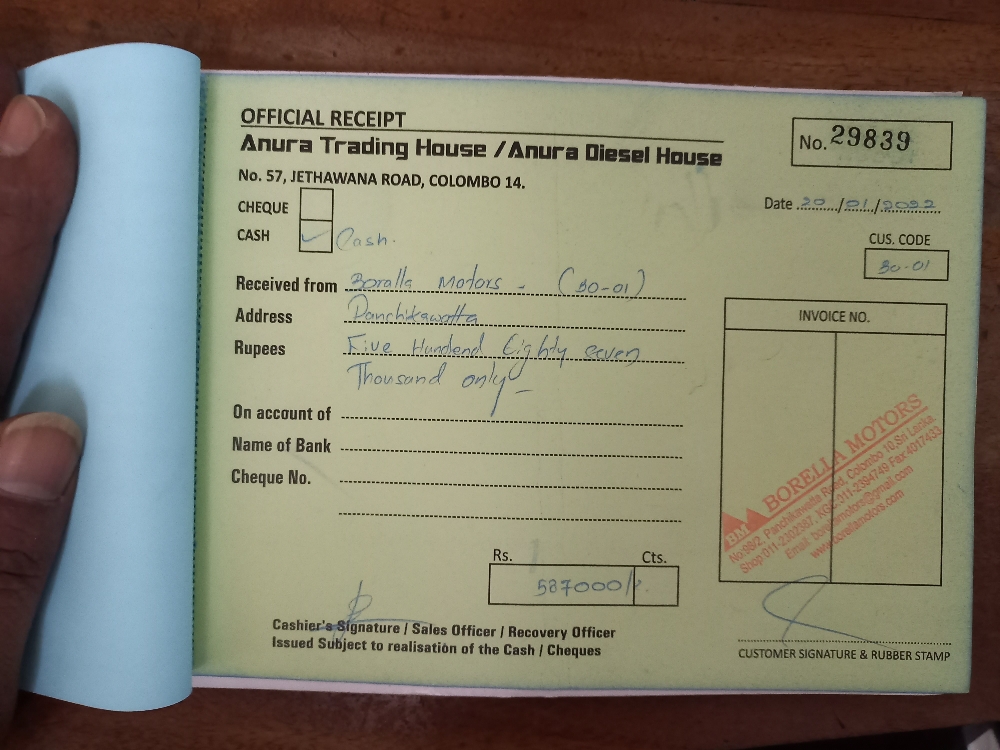 OFFICIAL RECEIPT
Anura Trading House / Anura Diesel House
No. 57, JETHAWANA ROAD, COLOMBO 14.
No. 29839
Date 20/01/2022
CHEQUE
CASH Cash.
CUS. CODE
B0-01
Received from Boralla Motors - (B0-01)
Address Panchikawatta
Rupees Five Hundend Eighty seven
Thousand only -
On account of
Name of Bank
Cheque No.
INVOICE NO.
BM BORELLA MOTORS
No:98/2, Panchikawatta Road, Colombo 10,Sri Lanka.
Shop:011-2302587, KGE:011-2394749 Fax:4017433
Email: borellamotors@gmail.com
www.borellamotors.com
Rs. Cts.
587000/-
Cashier's Signature / Sales Officer / Recovery Officer
Issued Subject to realisation of the Cash / Cheques
CUSTOMER SIGNATURE & RUBBER STAMP